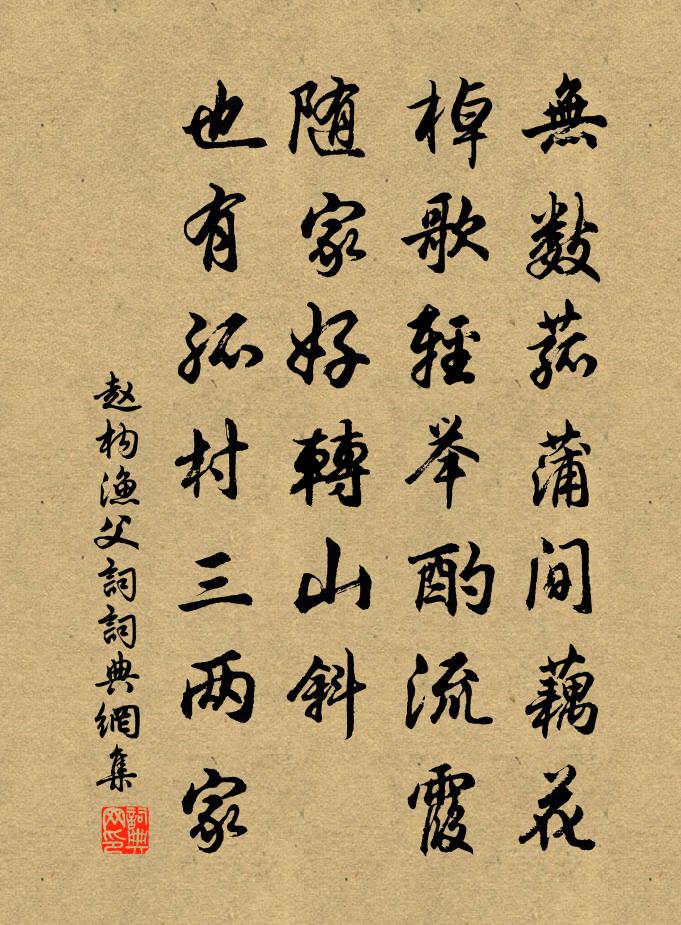 無數菰蒲間藕花
棹歌輕举酌流霞
随家好轉山斜
也有孤村三两家
赵构漁父詞詞典網集
詞典网印